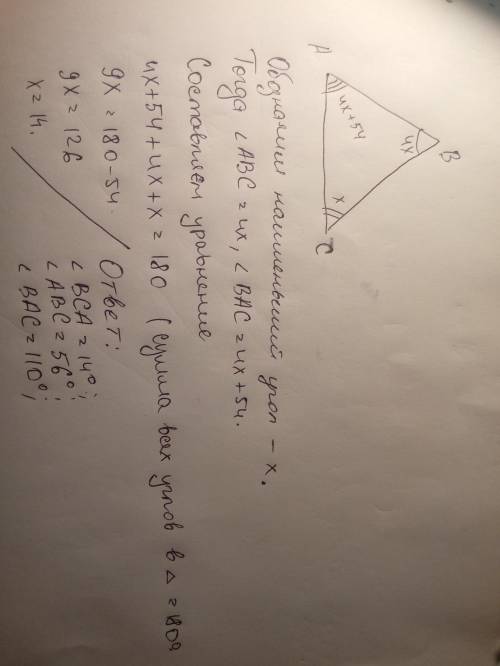 B
4x
A
4x+54
x
C
Обозначим наименьший угол – x.
Тогда ∠ABC = 4x, ∠BAC = 4x+54.
Составляем уравнение
4x+54+4x+x = 180 (сумма всех углов в △ = 180°
9x = 180-54.
9x = 126
x = 14.
Ответ:
∠BCA = 14°;
∠ABC = 56°;
∠BAC = 110°;